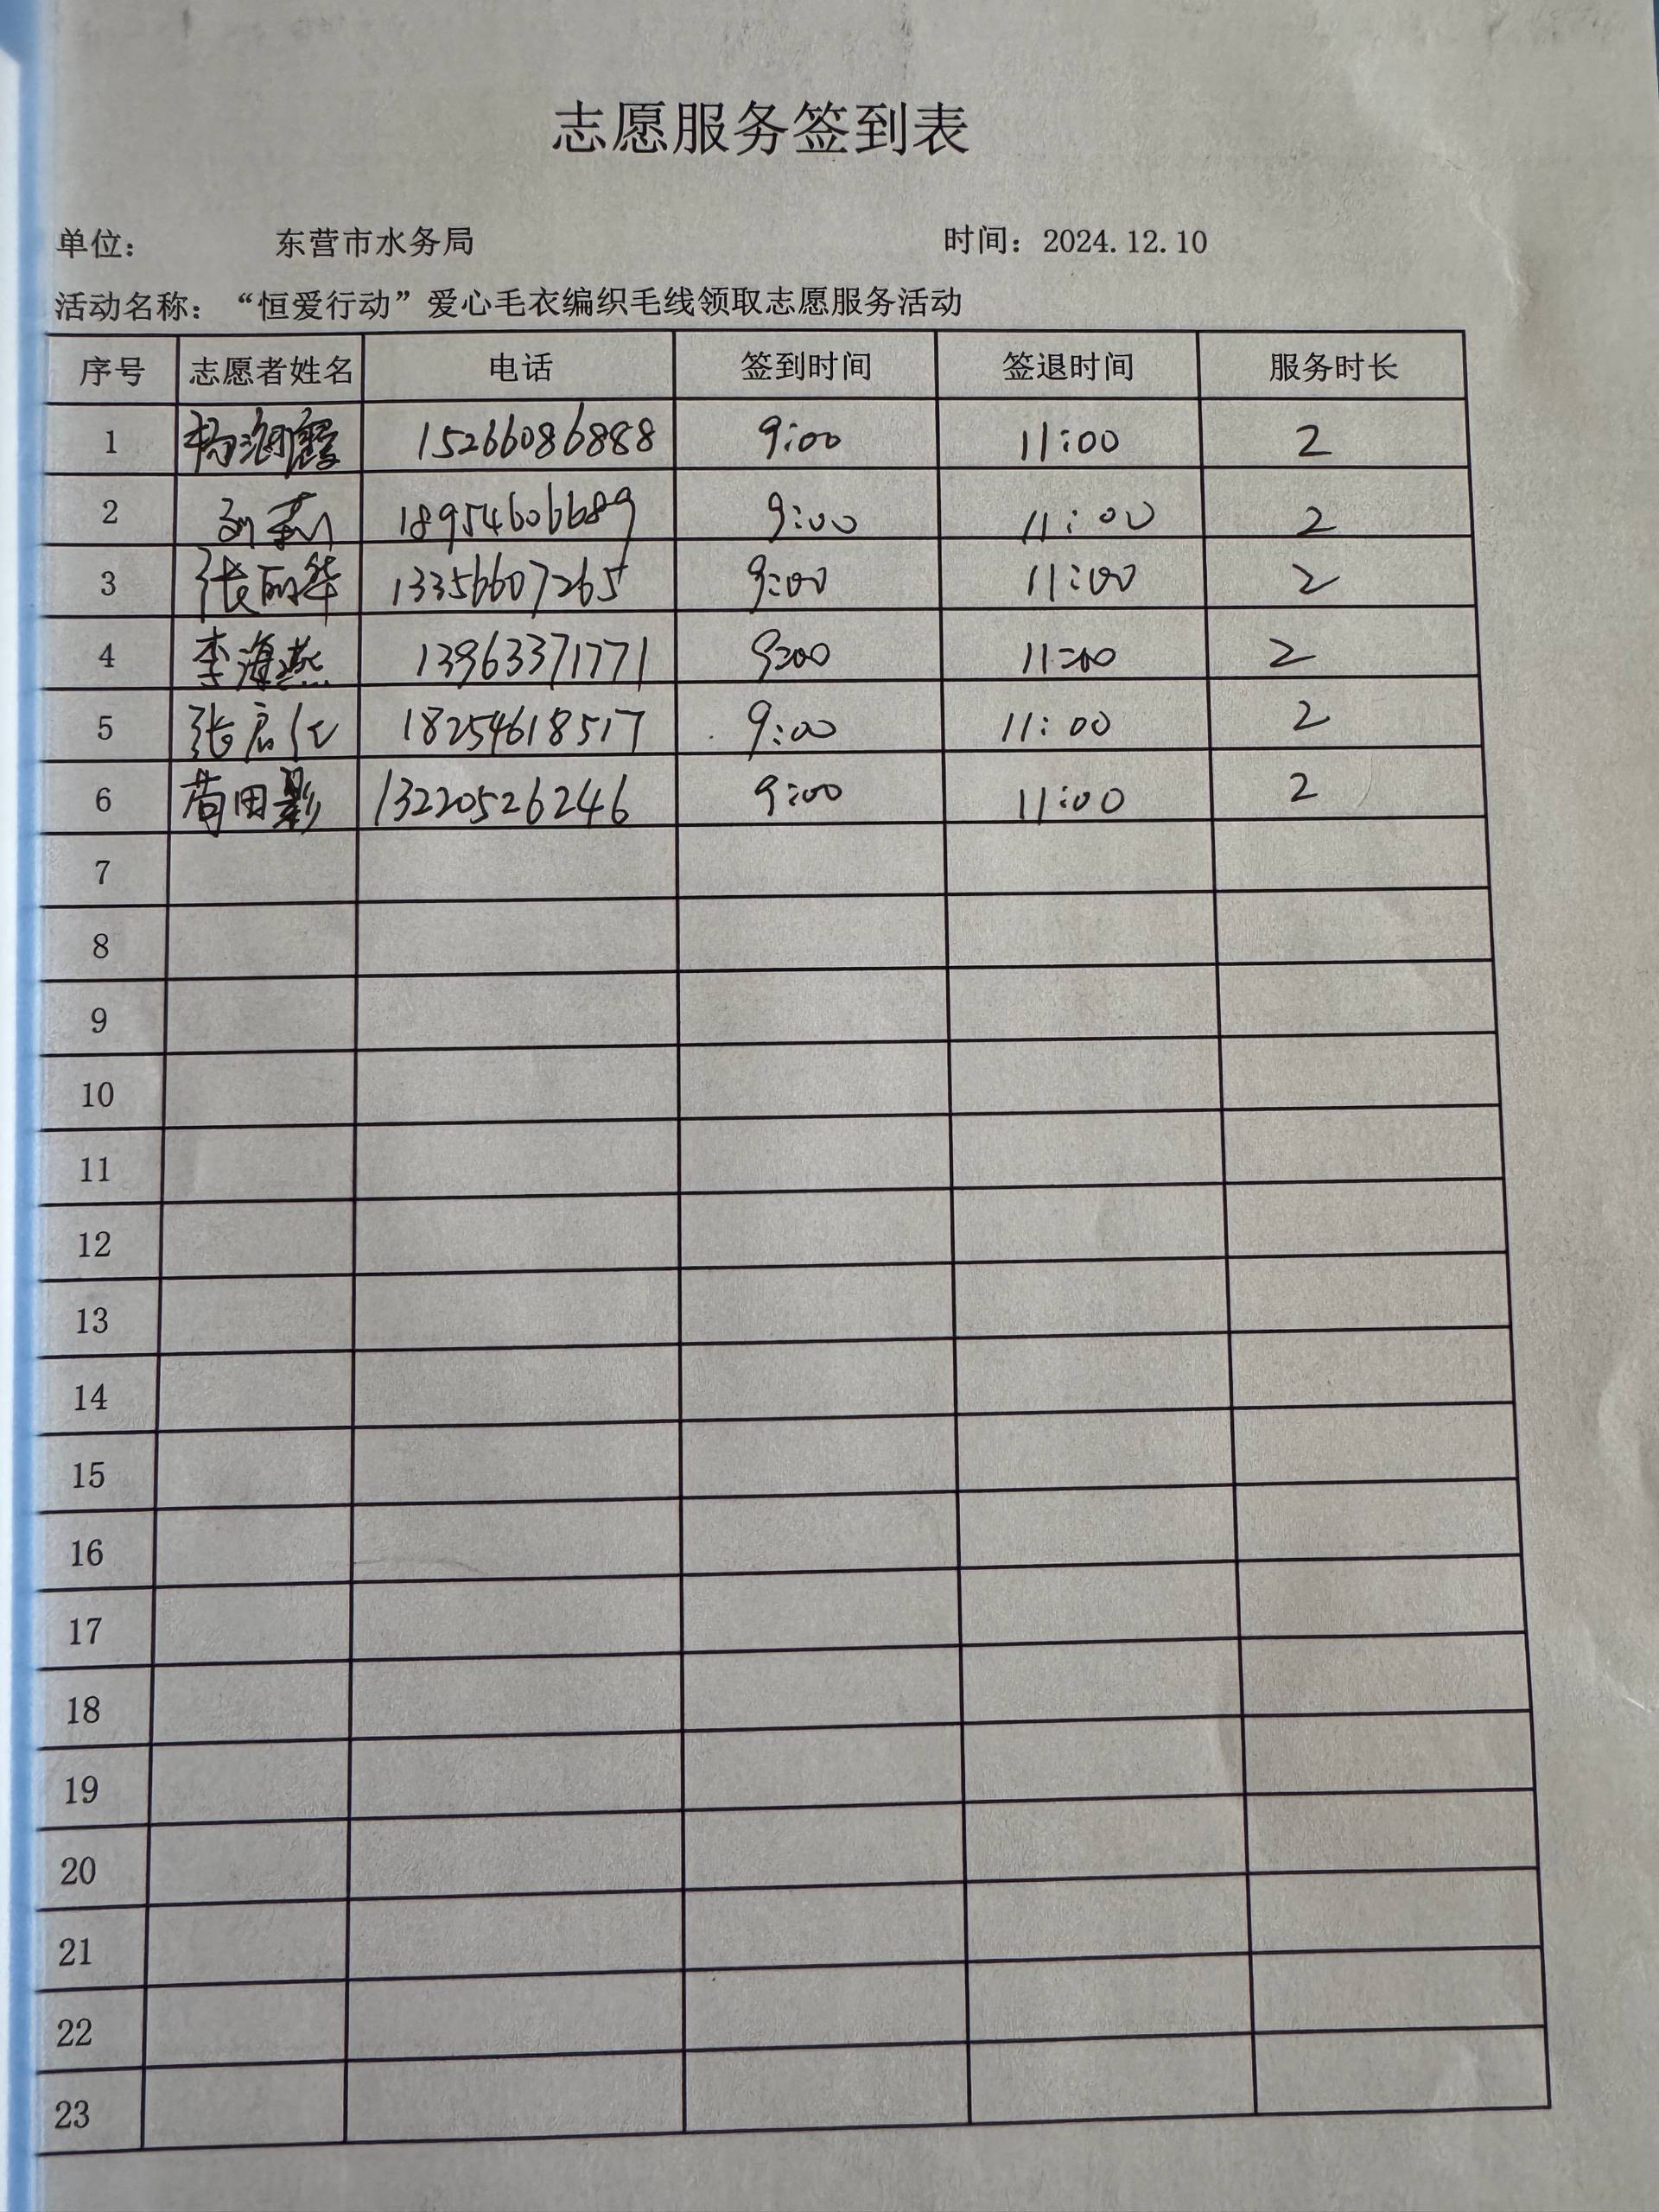 志愿服务签到表
单位： 东营市水务局 时间：2024.12.10
活动名称：“恒爱行动”爱心毛衣编织毛线领取志愿服务活动
序号 志愿者姓名 电话 签到时间 签退时间 服务时长
1 杨海霞 15266086888 9:00 11:00 2
2 刘 18954606689 9:00 11:00 2
3 张丽华 13356607265 9:00 11:00 2
4 李海燕 13963371771 9:00 11:00 2
5 张启仁 18254618517 9:00 11:00 2
6 田影 13220526246 9:00 11:00 2
7
8
9
10
11
12
13
14
15
16
17
18
19
20
21
22
23